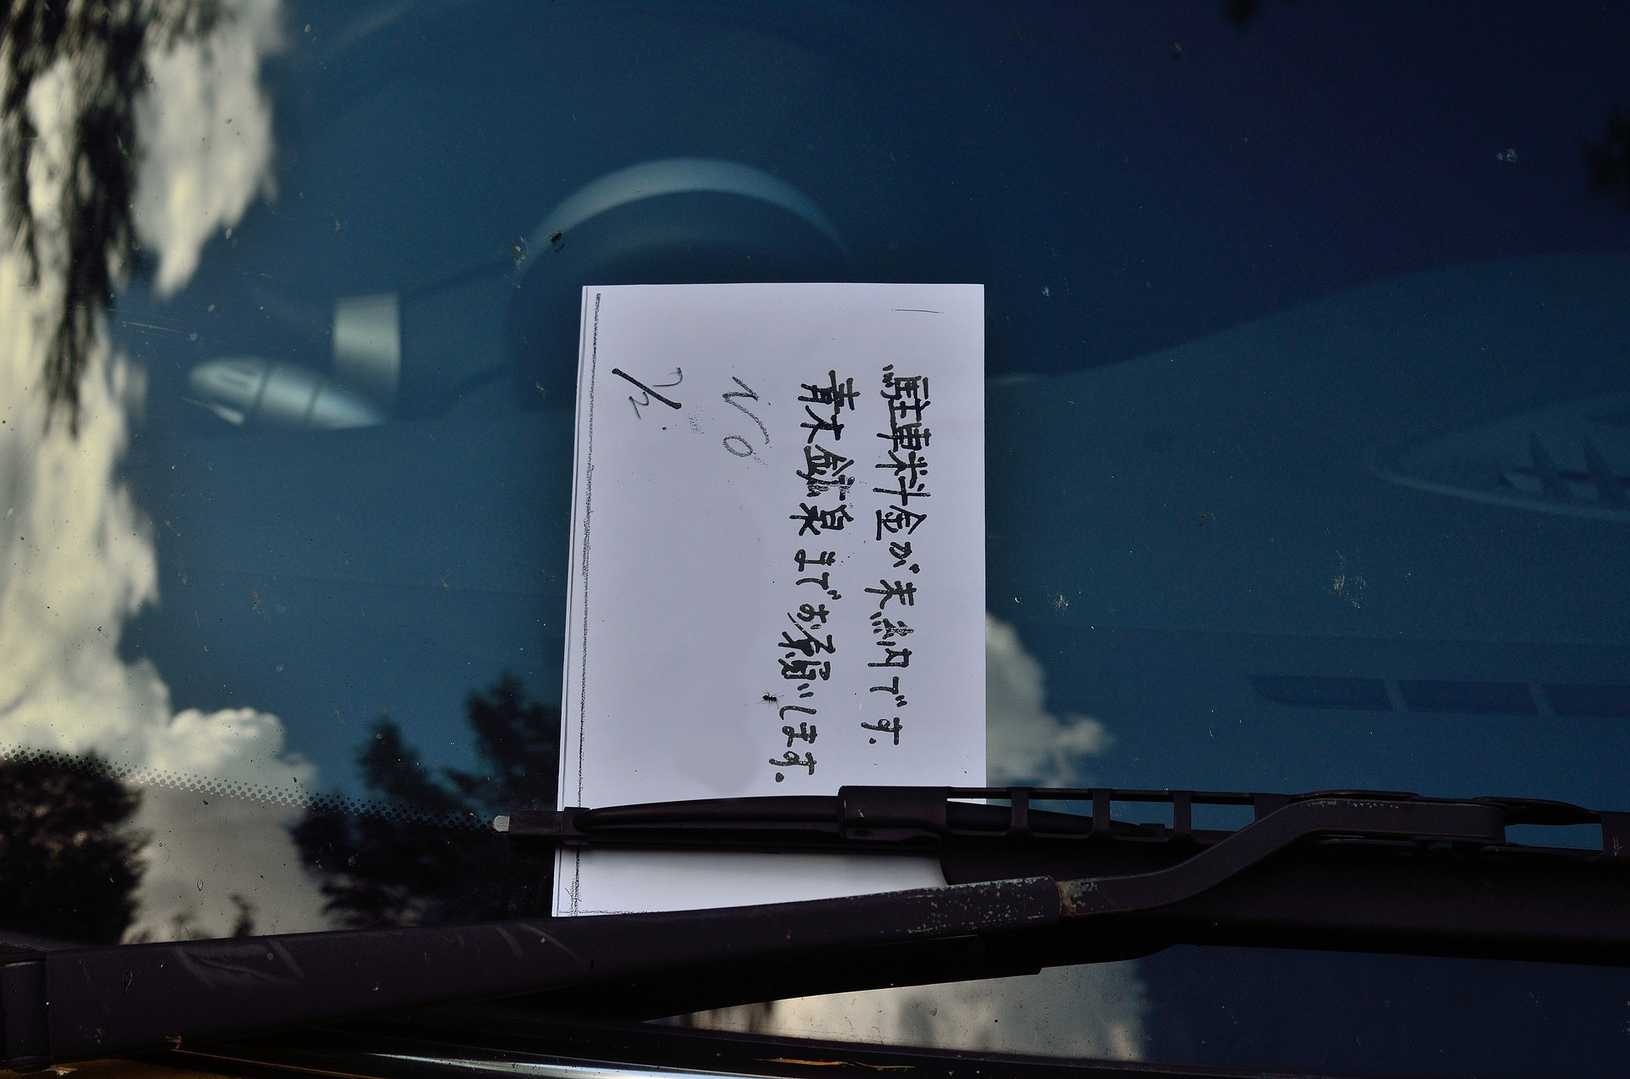 駐車料金が未納です.
青木鉱泉までお願いします。
No
7/2